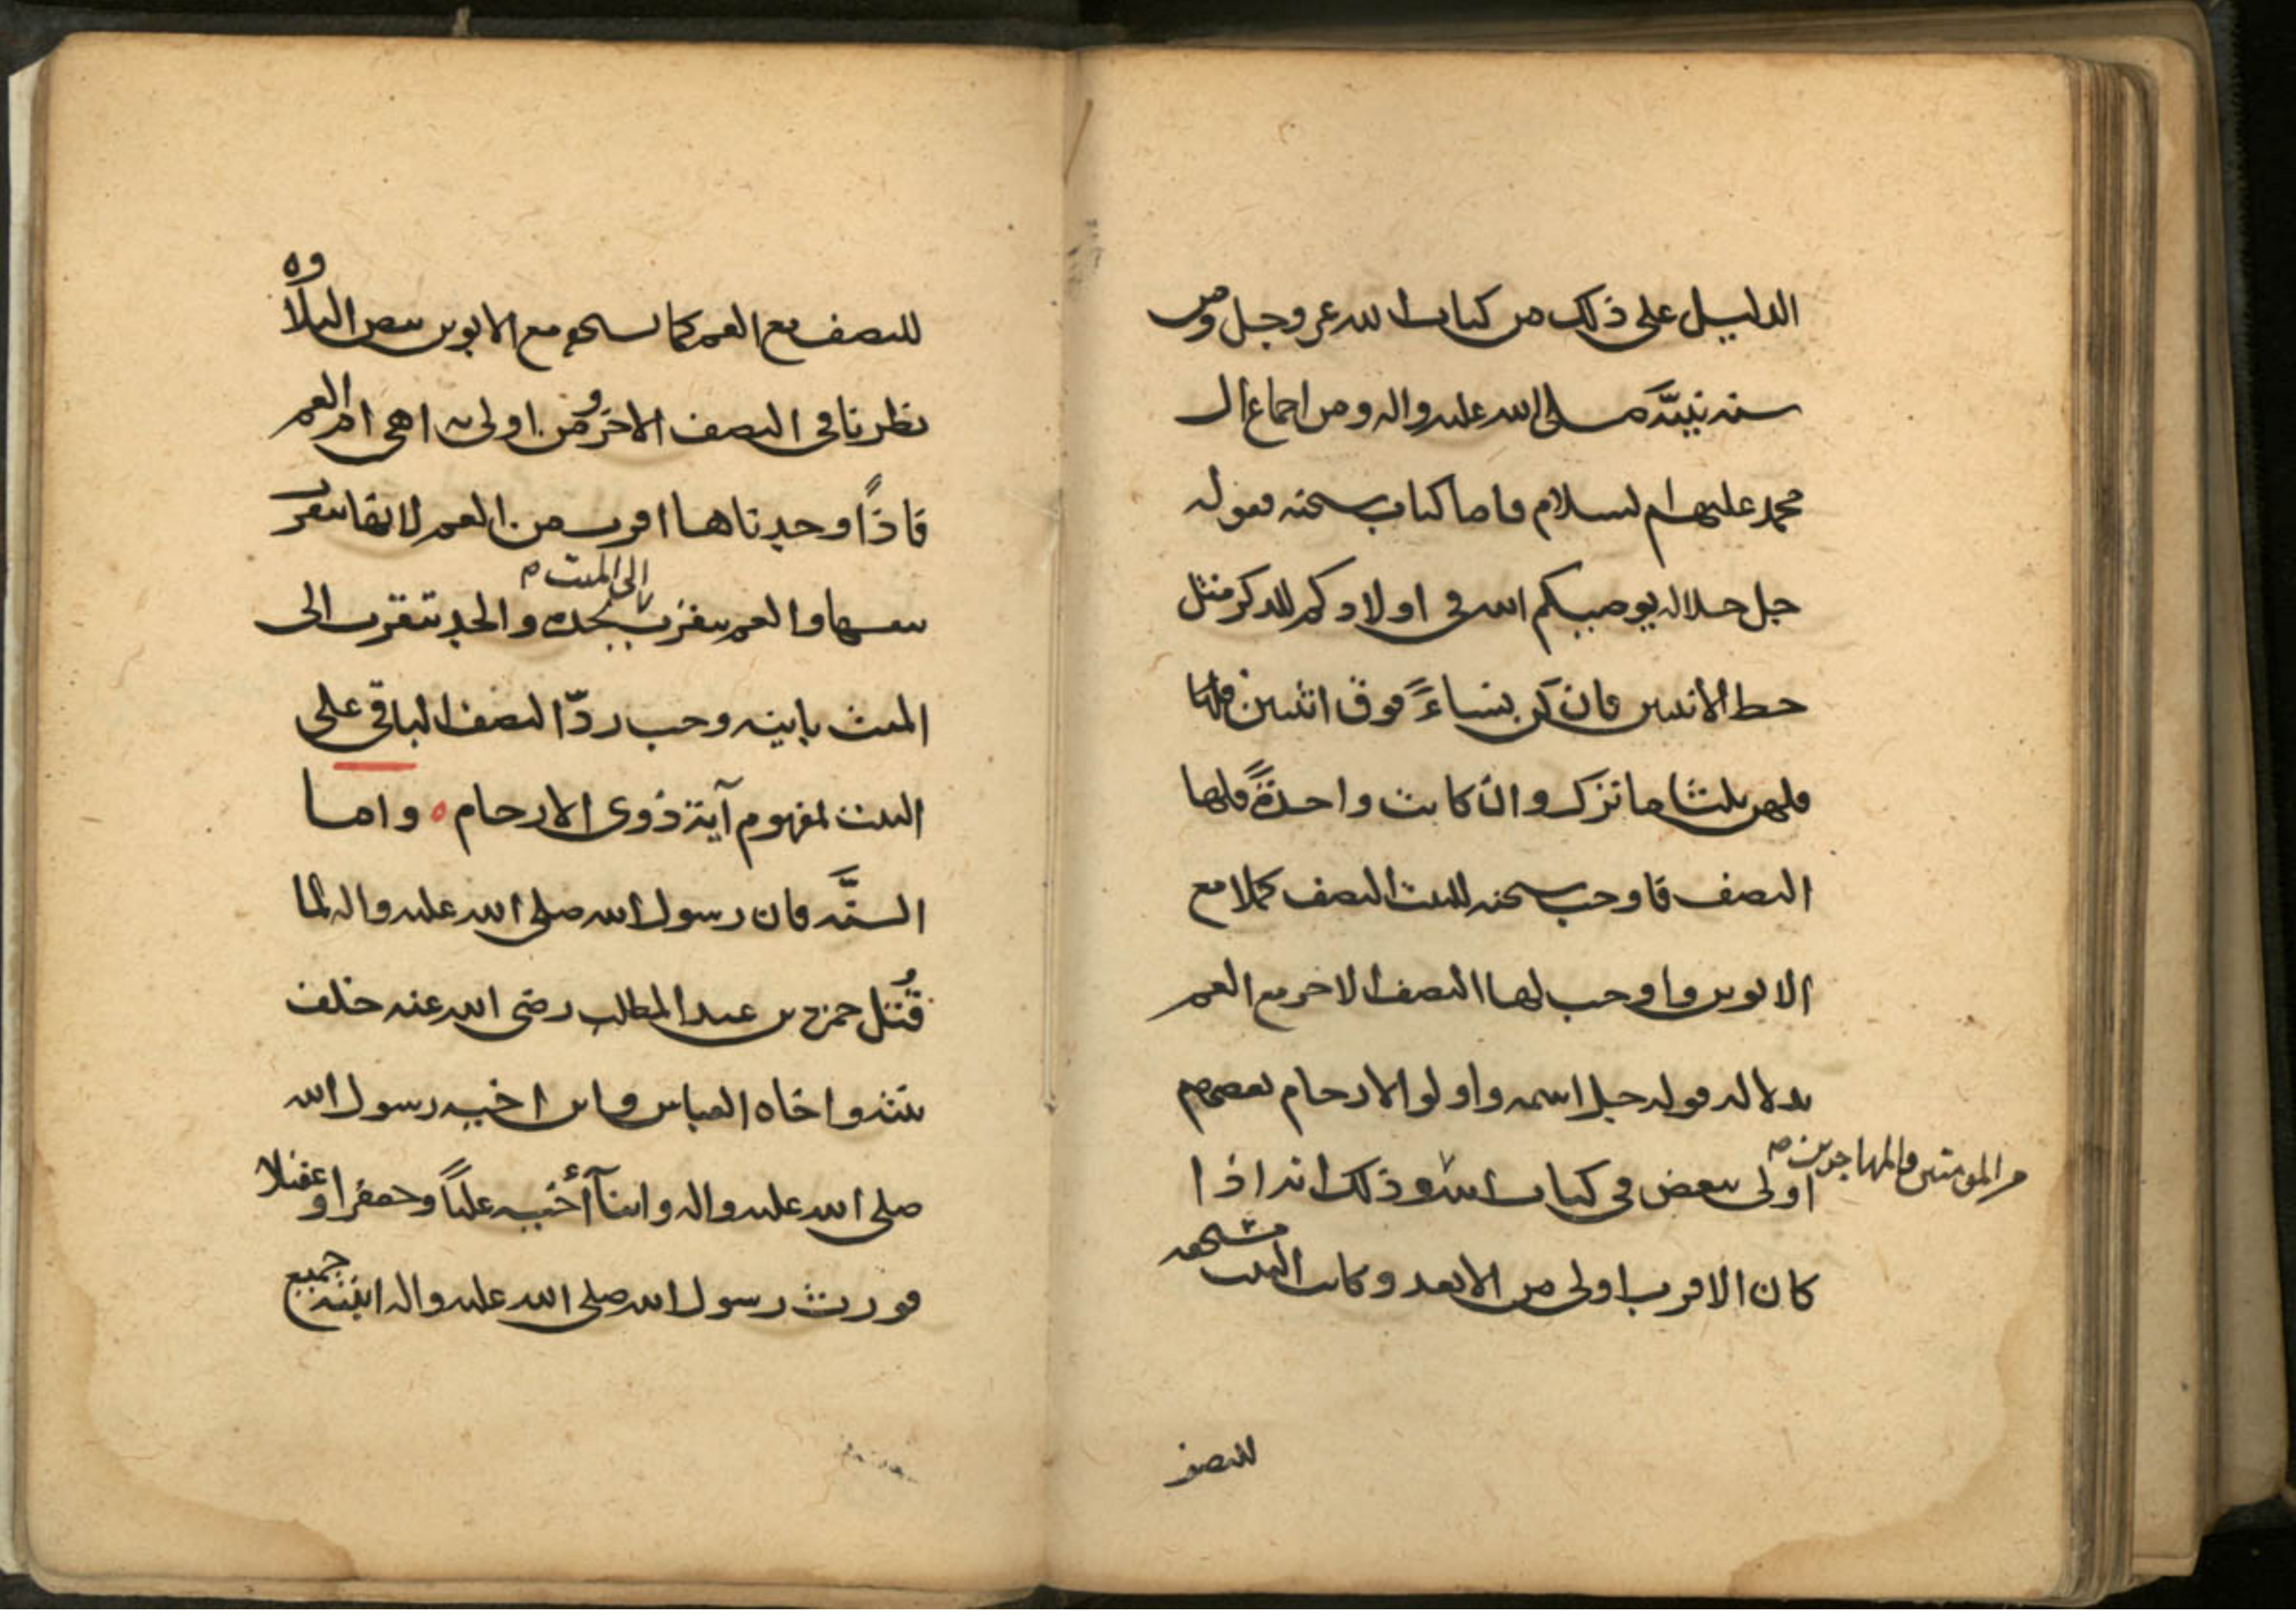 الدليل على ذلك من كتاب الله عز وجل ومن
سنه نبيّه صلى الله عليه واله ومن اجماع ال
محمد عليهم السلام فاما كتاب سبحنه فقوله
جل جلاله يوصيكم الله في اولادكم للذكر مثل
حظ الأنثيين فان كن نساءً فوق اثنتين فلها
فلهن ثلثا ما ترك وان كانت واحدةً فلها
النصف فاوجب سبحنه للبنت النصف كملا مع
الابوين واوجب لها النصف الاخر مع العم
بدلاله قوله جل اسمه واولو الارحام بعضهم
اولى ببعض في كتاب الله وذلك انه اذا
من المؤمنين والمهاجرين صح
كان الاقرب اولى من الابعد وكانت البنت مستحقه
للنصف
للنصف مع العم كما تستحقه مع الابوين بنص التلاوه
نظرنا في النصف الاخر ومن اولى به اهي ام العم
فاذًا وجدناها اقرب من العم لانها تتقرب
بنفسها والعم يتقرب بجده والجد يتقرب الى
الى الميت صح
الميت بابنه وجب ردّ النصف الباقي على
البنت لمفهوم آية ذوي الارحام ه واما
السنَّه فان رسول الله صلى الله عليه واله لما
قُتل حمزة بن عبد المطلب رضي الله عنه خلف
بنته واخاه العباس وابن اخيه رسول الله
صلى الله عليه واله وابنآ أخيه علياً وجعفرا وعقيلا
فورث رسول الله صلى الله عليه واله ابنته جميع